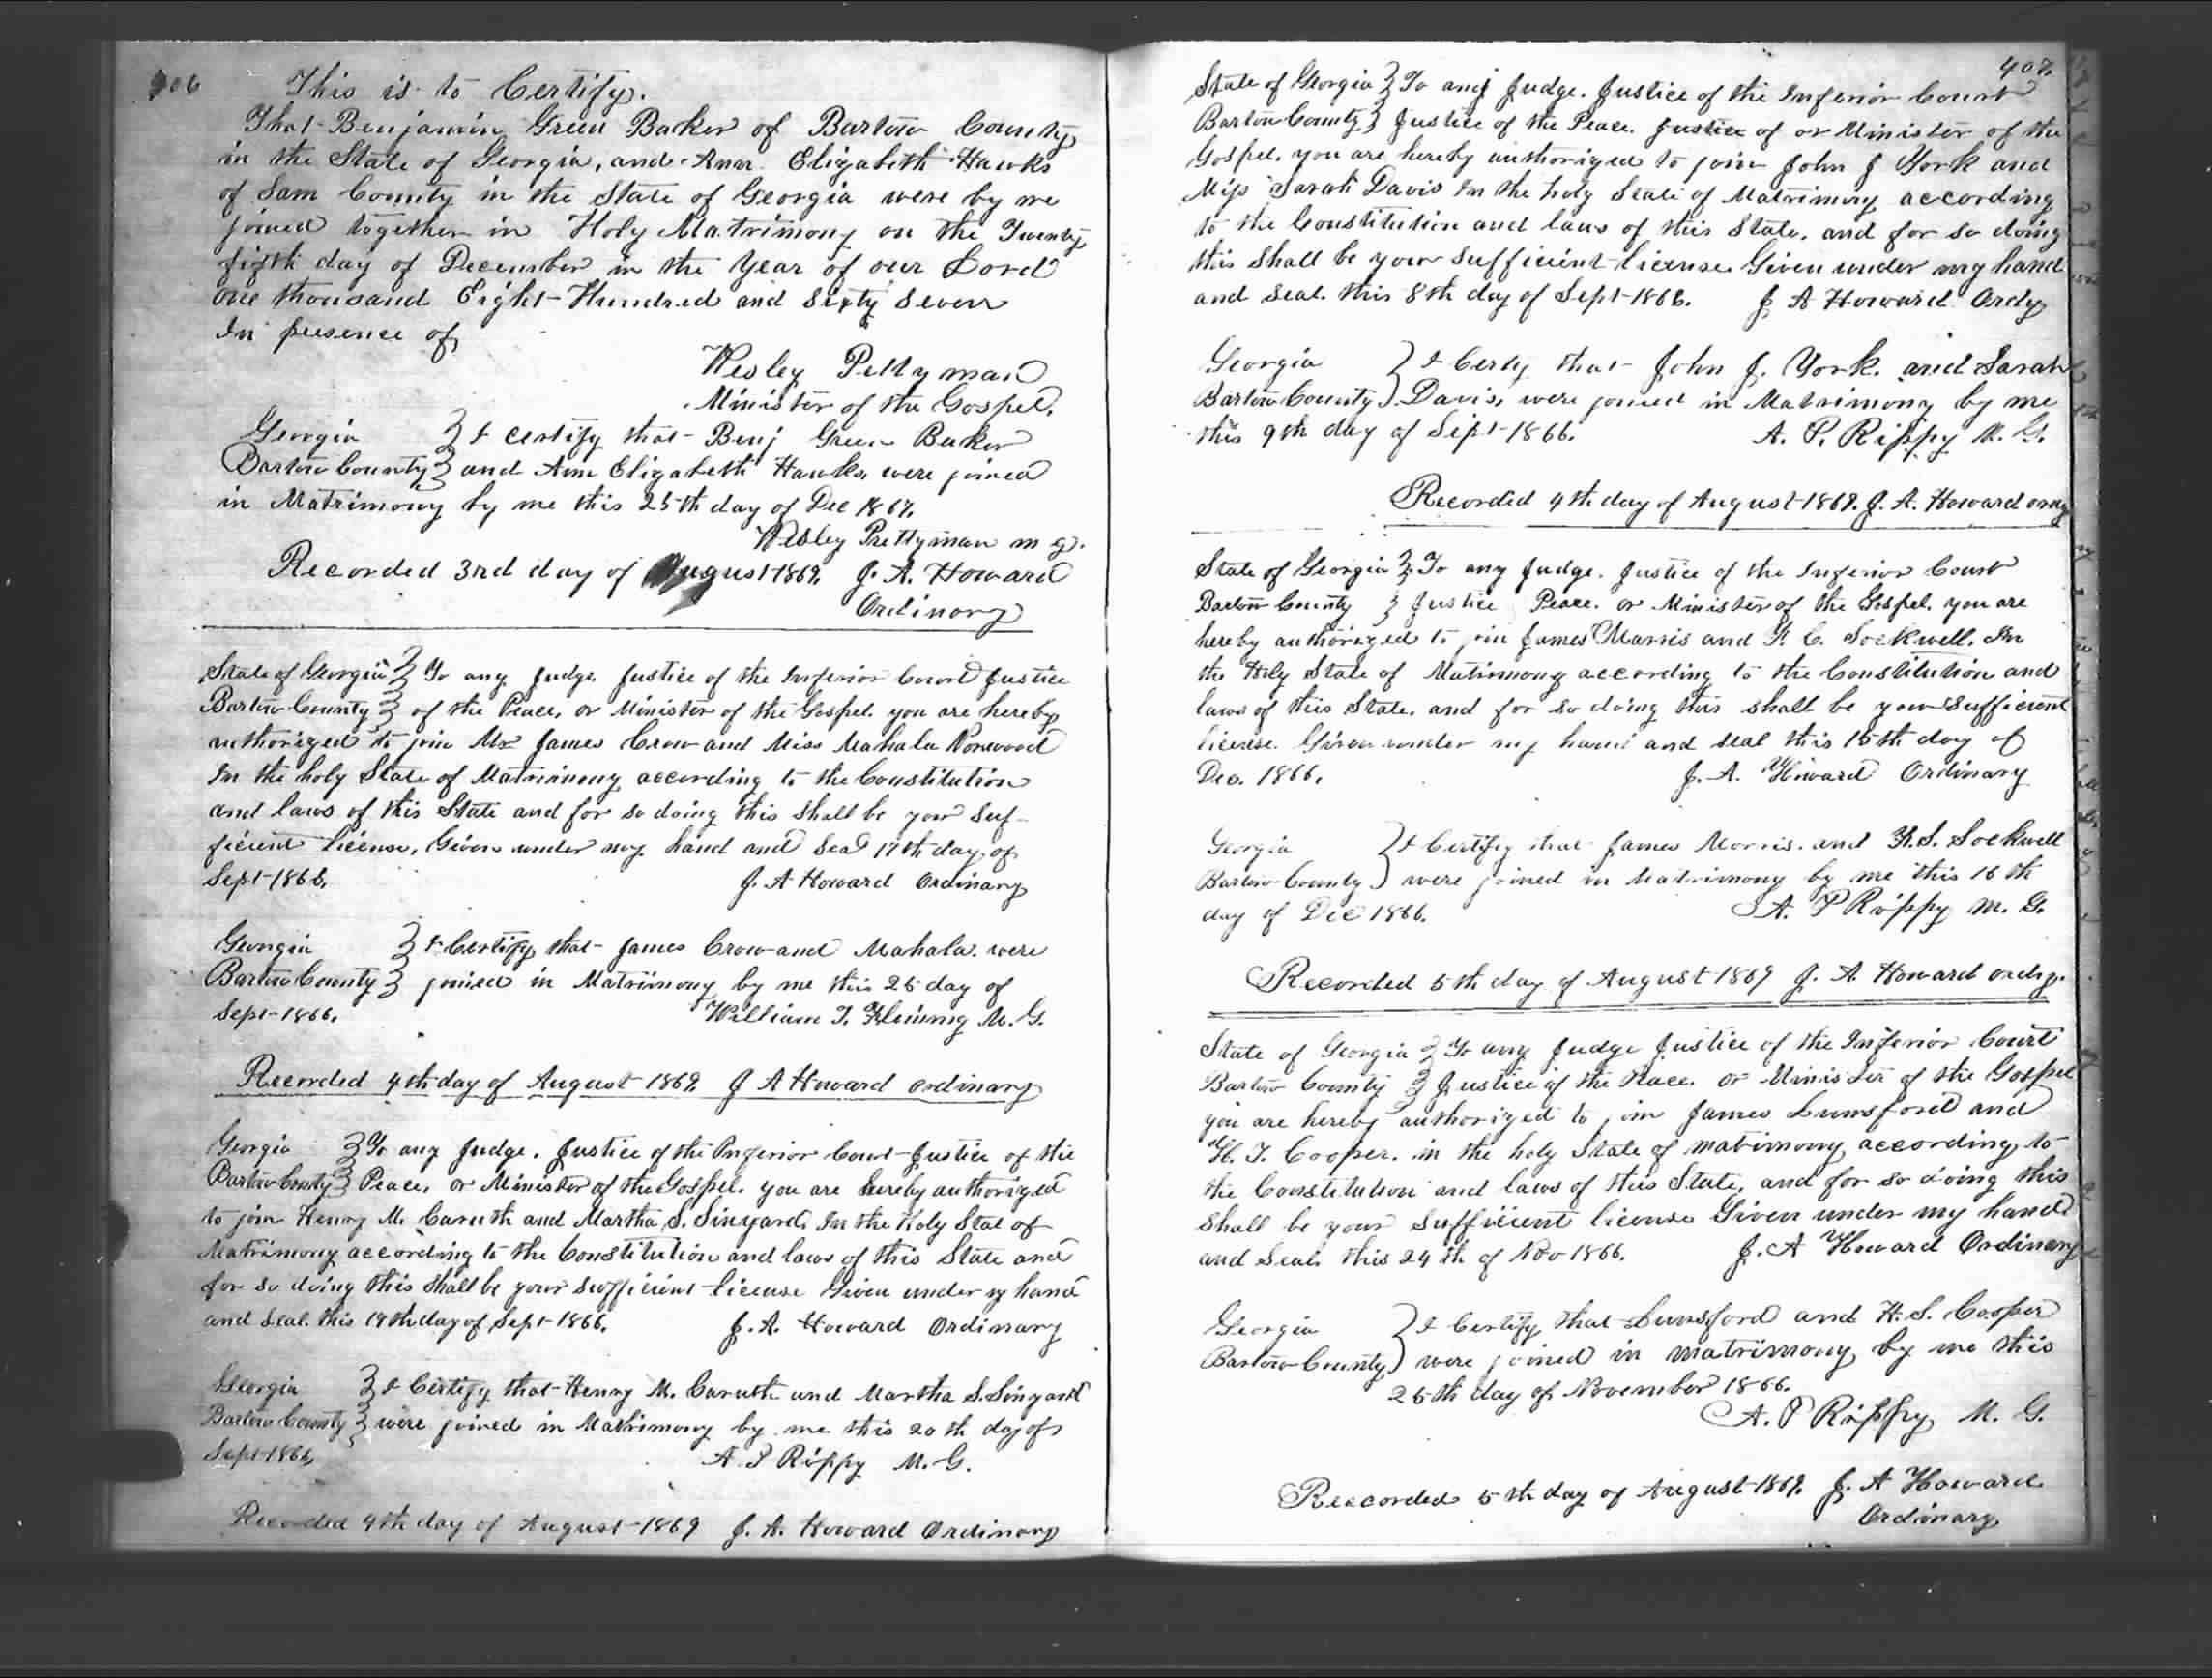 406
This is to Certify.
That Benjamin Green Baker of Bartow County
in the State of Georgia, and Ann Elizabeth Hawks
of Sam County in the State of Georgia were by me
joined together in Holy Matrimony on the Twenty
fifth day of December in the Year of our Lord
one thousand Eight Hundred and Sixty Seven
In presence of
Wesley Pettyman
Minister of the Gospel.
Georgia } I certify that Benj Green Baker
Bartow County } and Ann Elizabeth Hawks, were joined
in Matrimony by me this 25th day of Dec 1867.
Wesley Prettyman m g.
Recorded 3rd day of August 1869. J. A. Howard
Ordinary
State of Georgia } To any Judge Justice of the Inferior Court Justice
Bartow County } of the Peace, or Minister of the Gospel. you are hereby
authorized to join Mr James Crow and Miss Mahala Norwood
In the holy State of Matrimony according to the Constitution
and laws of this State and for so doing this shall be your Suf-
ficient license, Given under my hand and Seal 17th day of
Sept 1866. J. A Howard Ordinary
Georgia } I Certify that James Crow and Mahala. were
Bartow County } joined in Matrimony by me this 25 day of
Sept 1866. William T. Fleming M. G.
Recorded 4th day of August 1869 J A Howard ordinary
Georgia } To any Judge. Justice of the Inferior Court Justice of the
Bartow County } Peace, or Minister of the Gospel. you are hereby authorized
to join Henry M. Caruth and Martha S. Sinyard. In the Holy Stat of
Matrimony according to the Constitution and laws of this State and
for so doing this shall be your sufficient license Given under my hand
and Seal. this 19th day of Sept 1866. J. A. Howard Ordinary
Georgia } I Certify that Henry M. Caruth and Martha S. Sinyard
Bartow County } were joined in Matrimony by me this 20th day of
Sept 1866, A. P Rippy M. G.
Recorded 4th day of August 1869 J. A. Howard Ordinary
407.
State of Georgia } To any Judge. Justice of the Inferior Court
Bartow County } Justice of the Peace. Justice of or Minister of the
Gospel. you are hereby authorized to join John J York and
Miss Sarah Davis In the holy State of Matrimony according
to the Constitution and laws of this State. and for so doing
this Shall be your Sufficient license Given under my hand
and Seal. this 8th day of Sept 1866. J A Howard Ordy
Georgia } I Certy that John J. York. and Sarah
Bartow County } Davis, were joined in Matrimony by me
this 9th day of Sept 1866. A. P. Rippy M. G.
Recorded 4th day of August 1869. J. A. Howard
State of Georgia } To any Judge. Justice of the Inferior Court
Bartow County } Justice Peace. or Minister of the Gospel. you are
hereby authorized to join James Marris and Sockwell. In
the Holy State of Matrimony according to the Constitution and
laws of this State. and for so doing this shall be your Sufficient
license. Given under my hand and seal this 15th day of
Dec. 1866. J. A. Howard Ordinary
Georgia } I Certify that James Morris. and Sockwell
Bartow County } were joined in Matrimony by me this 16th
day of Dec 1866. A. P Rippy M. G.
Recorded 5th day of August 1869 J. A. Howard ordy.
State of Georgia } To any Judge Justice of the Inferior Court
Bartow County } Justice of the Peace. or Minister of the Gospel
you are hereby authorized to join James Lunsford and
H. T. Cooper. in the holy State of matimony according to
the Constitution and laws of this State, and for so doing this
Shall be your Sufficient license Given under my hand
and Seal. this 24th of Nov 1866. J. A Howard Ordinary
Georgia } I Certify that Lunsford and H. S. Cooper
Bartow County } were joined in matrimony by me this
25th day of November 1866.
A. P Rippy M. G.
Recorded 5th day of August 1869. J. A Howard
Ordinary